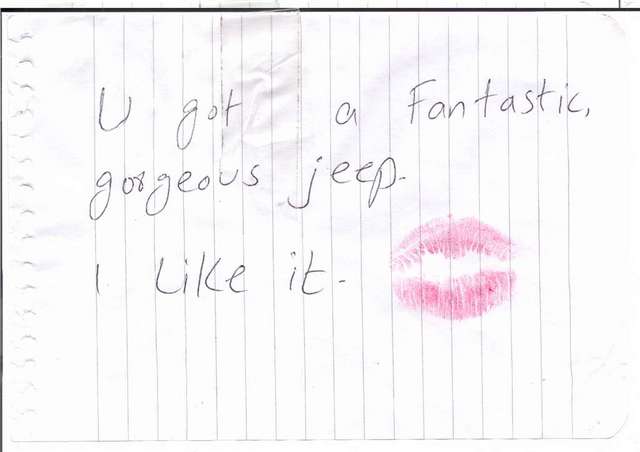 U got a Fantastic,
gorgeous jeep.
I Like it.